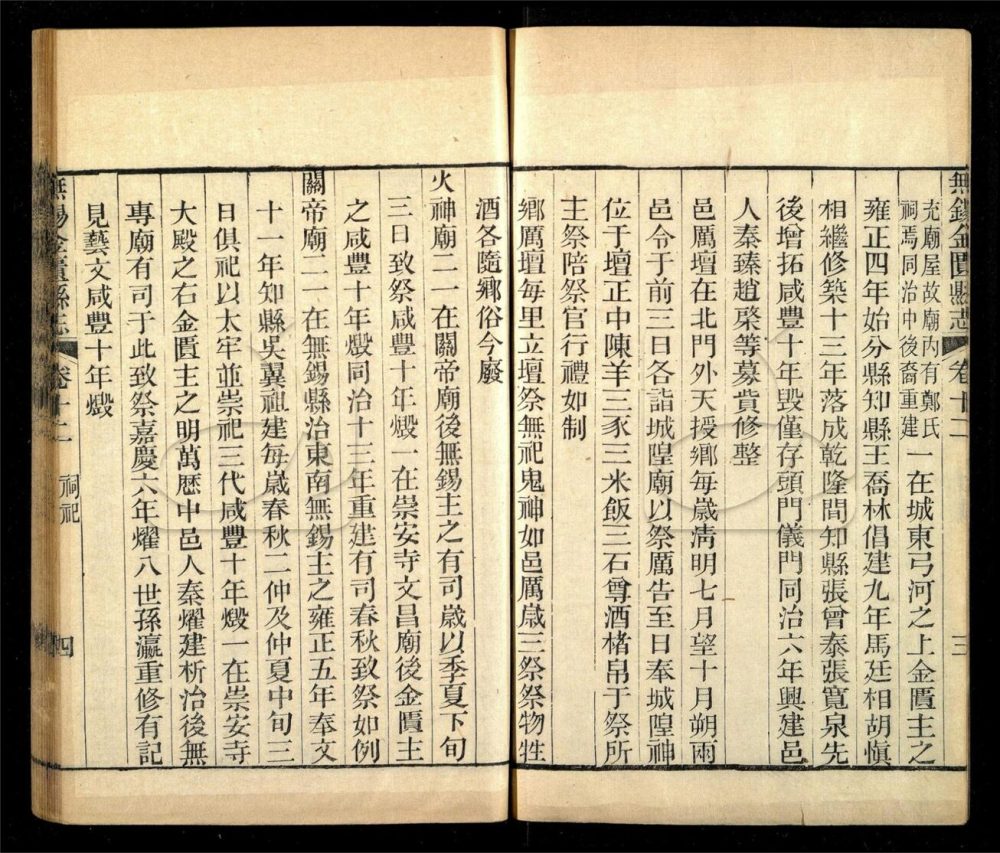 無錫金匱縣志 卷十二 三
充廟屋故廟內有鄭氏
祠焉同治中後裔重建
一在城東弓河之上金匱主之
雍正四年始分縣知縣王喬林倡建九年馬廷相胡愼
相繼修築十三年落成乾隆間知縣張曾泰張寬泉先
後增拓咸豐十年毀僅存頭門儀門同治六年興建邑
人秦臻趙棨等募貲修整
邑厲壇在北門外天授鄉每歲淸明七月望十月朔兩
邑令于前三日各詣城隍廟以祭厲告至日奉城隍神
位于壇正中陳羊三豕三米飯三石尊酒楮帛于祭所
主祭陪祭官行禮如制
鄉厲壇每里立壇祭無祀鬼神如邑厲歲三祭祭物牲
酒各隨鄉俗今廢
火神廟二一在關帝廟後無錫主之有司歲以季夏下旬
三日致祭咸豐十年燬一在崇安寺文昌廟後金匱主
之咸豐十年燬同治十三年重建有司春秋致祭如例
關帝廟二一在無錫縣治東南無錫主之雍正五年奉文
十一年知縣吳翼祖建每歲春秋二仲及仲夏中旬三
日俱祀以太牢並崇祀三代咸豐十年燬一在崇安寺
大殿之右金匱主之明萬歷中邑人秦燿建析治後無
專廟有司于此致祭嘉慶六年燿八世孫瀛重修有記
見藝文咸豐十年燬
無錫金匱縣志 卷十二 祠祀 四